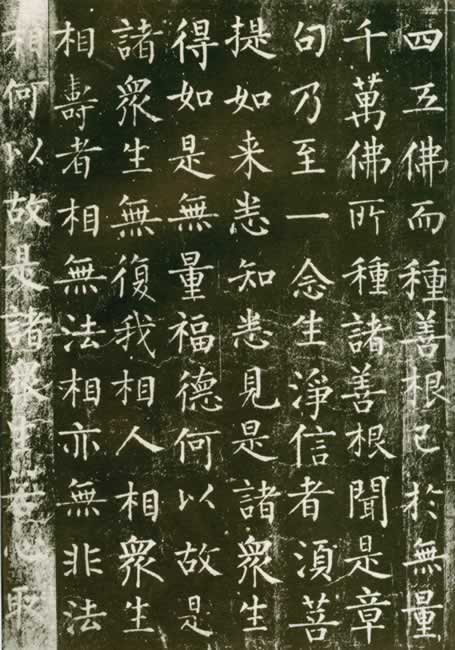 四五佛而種善根已於無量
千萬佛所種諸善根聞是章
句乃至一念生淨信者須菩
提如来悉知悉見是諸衆生
得如是無量福德何以故是
諸衆生無復我相人相衆生
相壽者相無法相亦無非法
相何以故是諸衆生若心取